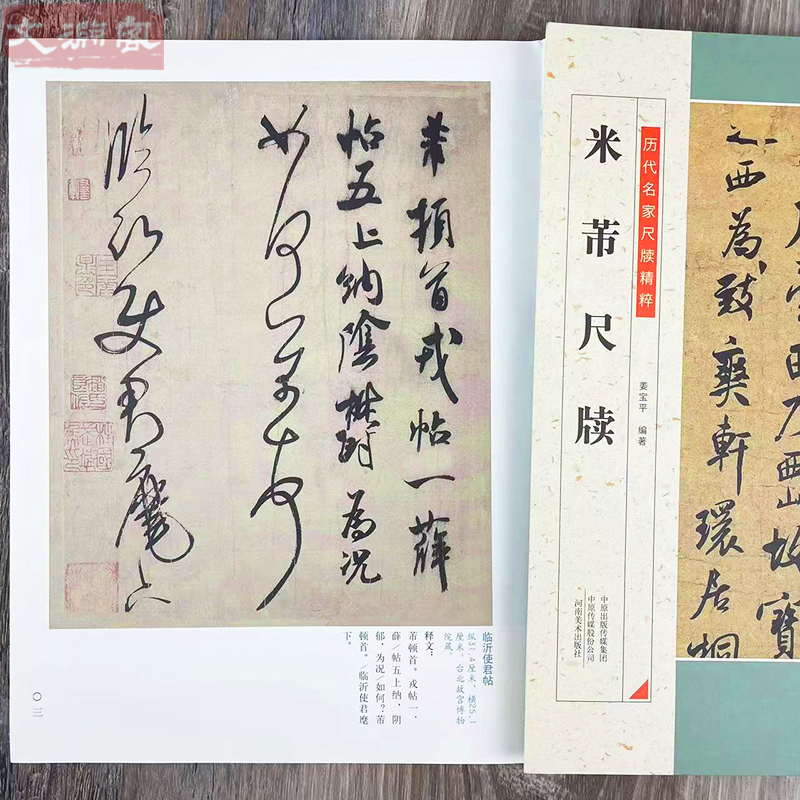 文渊阁
芾頓首戎帖一薛
帖五上納陰鬱為況
如何芾頓首
臨沂使君麾下
临沂使君帖
纵31.4厘米，横25.1
厘米。台北故宫博物
院藏。
释文：
芾顿首。戎帖一、
薛/帖五上纳，阴
郁，为况/如何？芾
顿首。/临沂使君麾
下。
〇三
历代名家尺牍精粹
米芾尺牍
姜宝平 编著
中原出版传媒集团
中原传媒股份公司
河南美术出版社
臺西乃西山故寶
之西為致爽軒環居桐